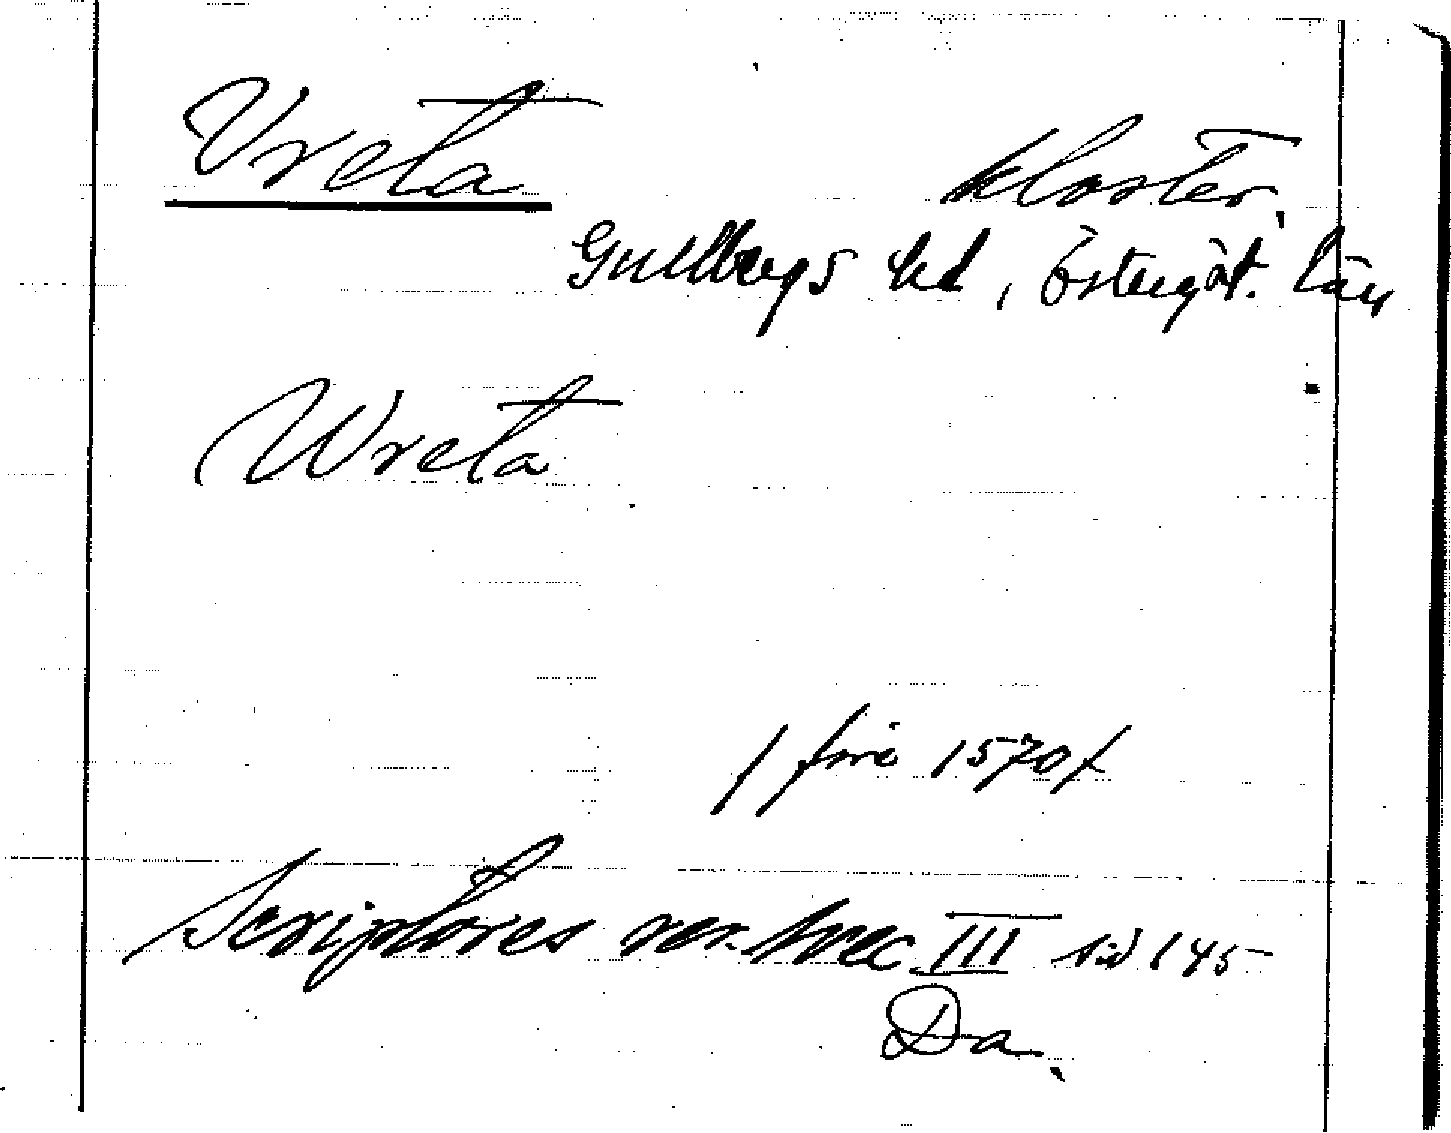 Vreta kloster
Gullbergs hd, Östergöt. län
Wreta
/ före 1570/
Scriptores rer. Svec III sid 145
Da